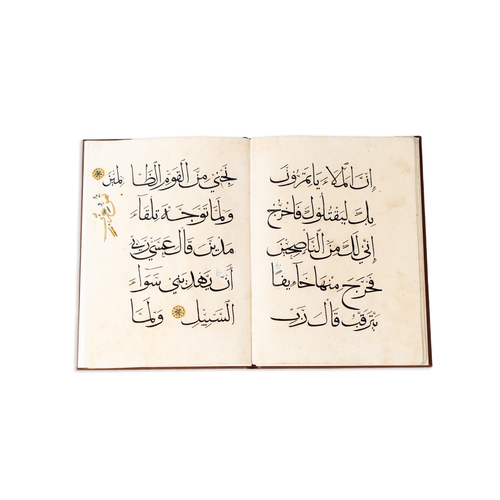 إن الملاء ياتمرون
بك ليقتلوك فاخرج
إني لك من الناصحين
فخرج منها خآيفا
يترقب قال رب
نجني من القوم الظا لمين
ولما توجه تلقاء
مدين قال عسى ربي
أن يهديني سواء
السبيل ولما